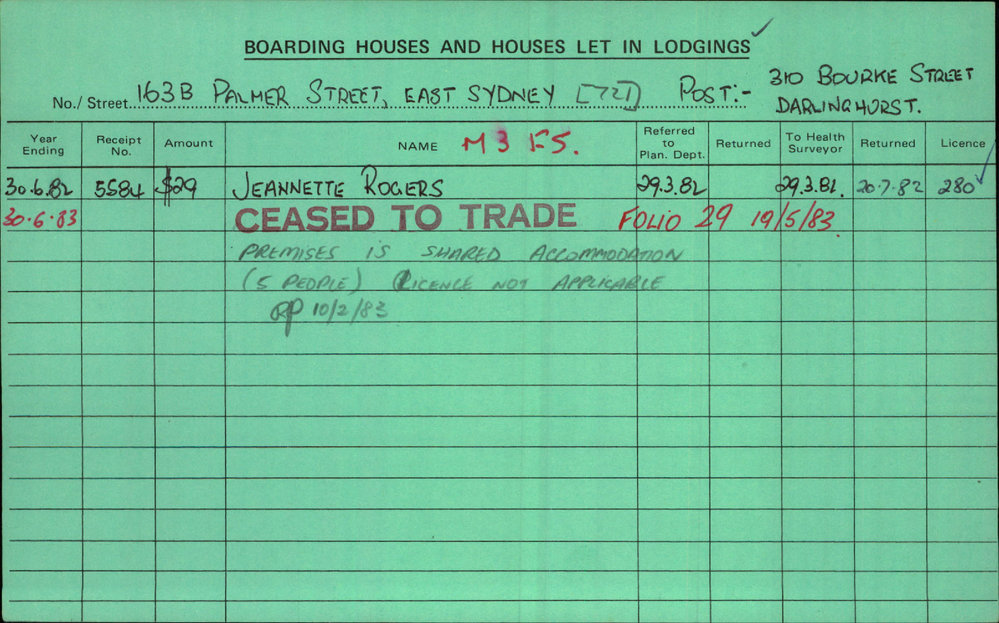 BOARDING HOUSES AND HOUSES LET IN LODGINGS ✓
No./Street 163B PALMER STREET, EAST SYDNEY [721] POST:- 310 BOURKE STREET
DARLINGHURST.
Year Ending Receipt No. Amount NAME M 3 FS. Referred to Plan. Dept. Returned To Health Surveyor Returned Licence
30.6.82 5584 $29 JEANNETTE ROGERS 29.3.82 29.3.82. 20.7.82 280 ✓
30.6.83 CEASED TO TRADE FOLIO 29 19/5/83
PREMISES IS SHARED ACCOMMODATION
(5 PEOPLE) LICENCE NOT APPLICABLE
RP 10/2/83